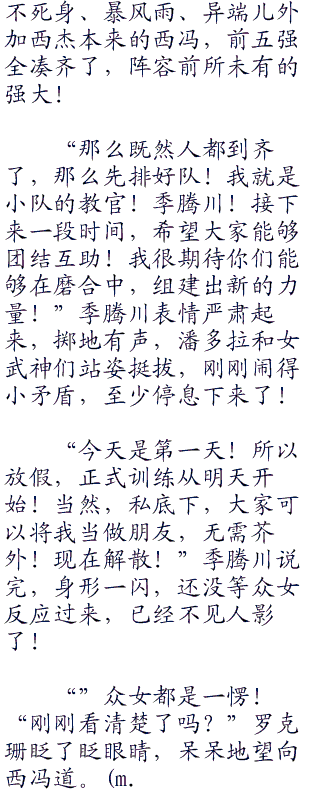 不死身、暴风雨、异端儿外
加西杰本来的西冯，前五强
全凑齐了，阵容前所未有的
强大！
“那么既然人都到齐
了，那么先排好队！我就是
小队的教官！季腾川！接下
来一段时间，希望大家能够
团结互助！我很期待你们能
够在磨合中，组建出新的力
量！”季腾川表情严肃起
来，掷地有声，潘多拉和女
武神们站姿挺拔，刚刚闹得
小矛盾，至少停息下来了！
“今天是第一天！所以
放假，正式训练从明天开
始！当然，私底下，大家可
以将我当做朋友，无需芥
外！现在解散！”季腾川说
完，身形一闪，还没等众女
反应过来，已经不见人影
了！
“”众女都是一愣！
“刚刚看清楚了吗？”罗克
珊眨了眨眼睛，呆呆地望向
西冯道。(m.